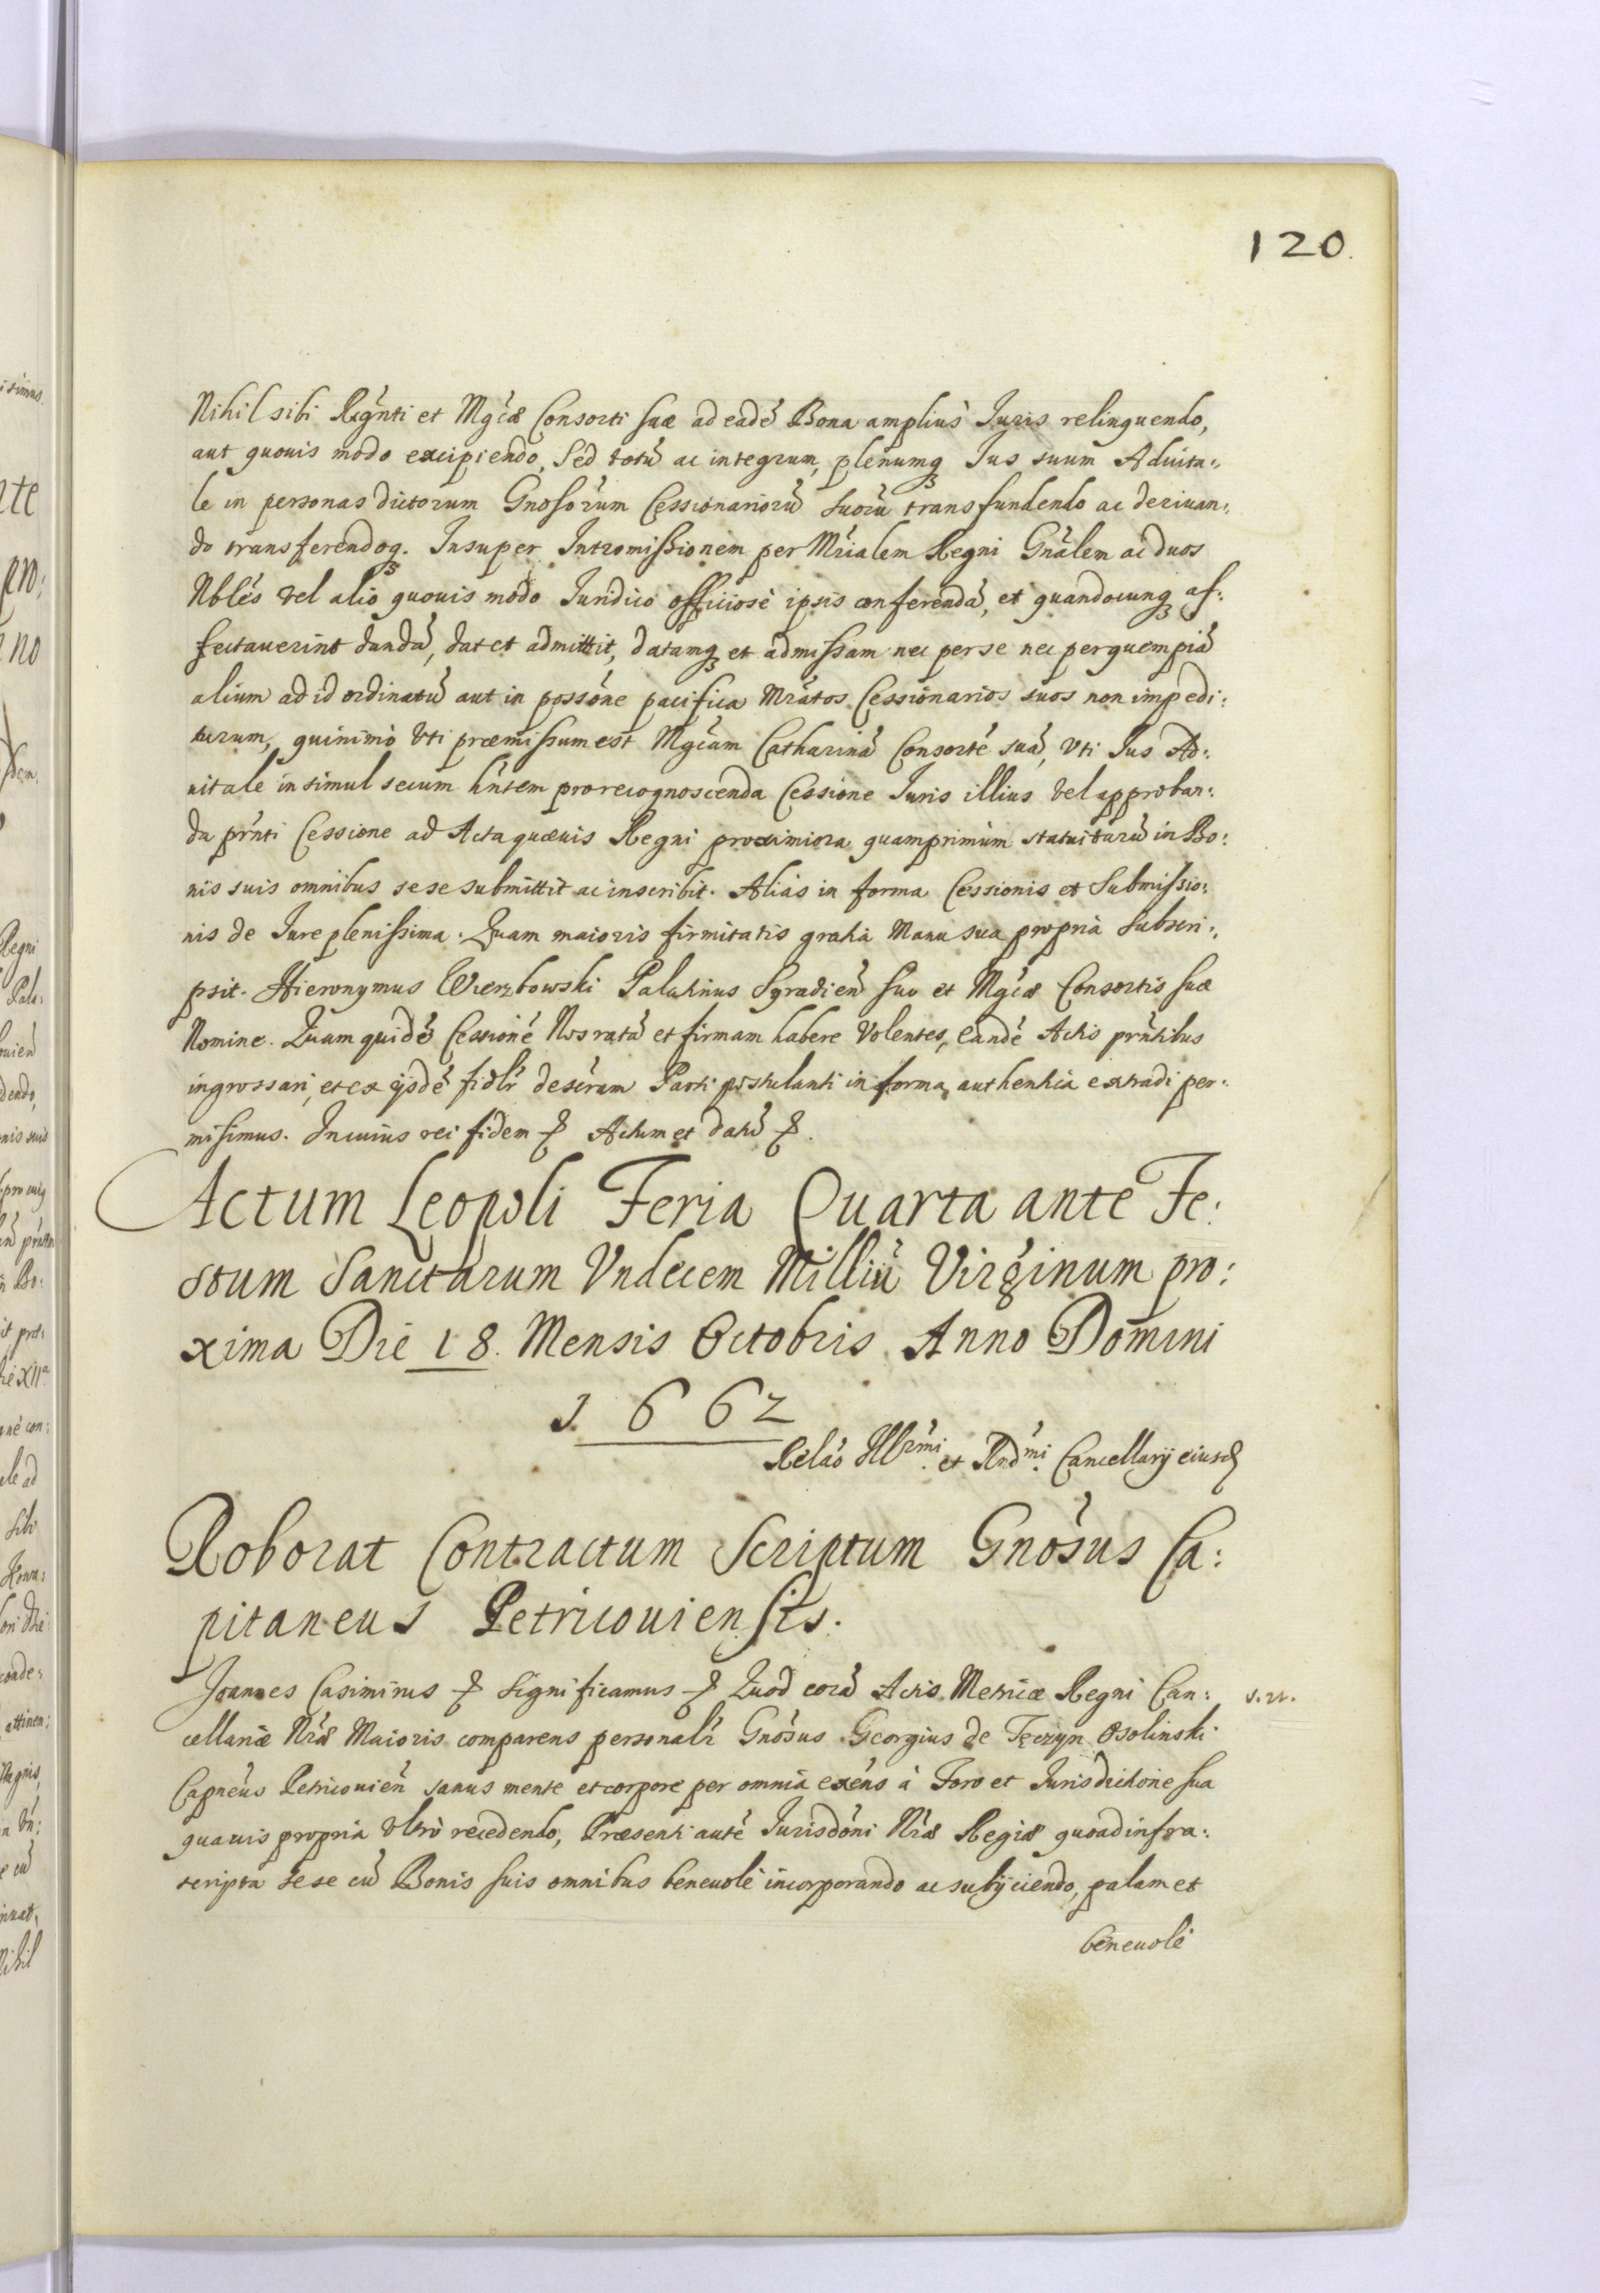 120.
Nihil sibi Rgñti et Mgcæ Consorti suæ ad eadẽ Bona amplius Juris relinquendo,
aut quouis modo excipiendo, Sed totũ ac integrum, plenumq̃ Jus suum Aduita:
le in personas dictorum Gnosorum Cessionariorũ suorũ transfundendo ac deriuan:
do transferendoq̃. Insuper Intromissionem per Mrialem Regni Gnãlem ac duos
Nbles vel alio quouis modo Juridico officiosè ipsis conferendã, et quandocunq̃ af:
fectauerint dandã, dat et admittit, datamq̃ et admissam nec per se nec per quempiã
alium ad id ordinatũ aut in possõne pacifica Mrãtos Cessionarios suos non impedi:
turum, quinimò vti præmissum est Mgcam Catharinã Consortẽ suã, vti Jus Ad:
uitale insimul secum hñtem pro recognoscenda Cessione Juris illius vel approban:
da prñti Cessione ad Acta quæuis Regni proximiora quamprimùm statuiturũ in Bo:
nis suis omnibus sese submittit ac inscribit. Aliàs in forma Cessionis et Submissio:
nis de Jure plenissima. Quam maioris firmitatis gratia Manu sua propria subscri:
psit. Hieronymus Wierzbowski Palatinus Syradieñ suo et Mgcæ Consortis suæ
Nomine. Quam quidẽ Cessionẽ Nos ratã et firmam habere Volentes, eandẽ Actis prñtibus
ingrossari, et ex ijsdẽ fidlr descram Parti postulanti in forma authentica extradi per:
misimus. In cuius rei fidem & Actum et datũ &.
Actum Leopoli Feria Quarta ante Fe:
stum Sanctarum Vndecem Milliũ Virginum pro:
xima Die 18. Mensis Octobris Anno Domini
1662
Relão Illrmi. et Rndmi. Cancellarij eiusd
Roborat Contractum Scriptum Gnosus Ca:
pitaneus Petricouiensis.
Joannes Casimirus & Significamus & Quod corã Actis Metricæ Regni Can:
cellariæ Nræ Maioris comparens personalr Gnosus Georgius de Tęczyn Osolinski
Capneus Petricouieñ sanus mente et corpore per omnia exẽns à Foro et Jurisdictione sua
quauis propria vltrò recedendo, Præsenti autẽ Jurisdõni Nræ Regiæ quoad infra:
scripta sese cũ Bonis suis omnibus beneuolè incorporando ac subijciendo, palam et
beneuolè